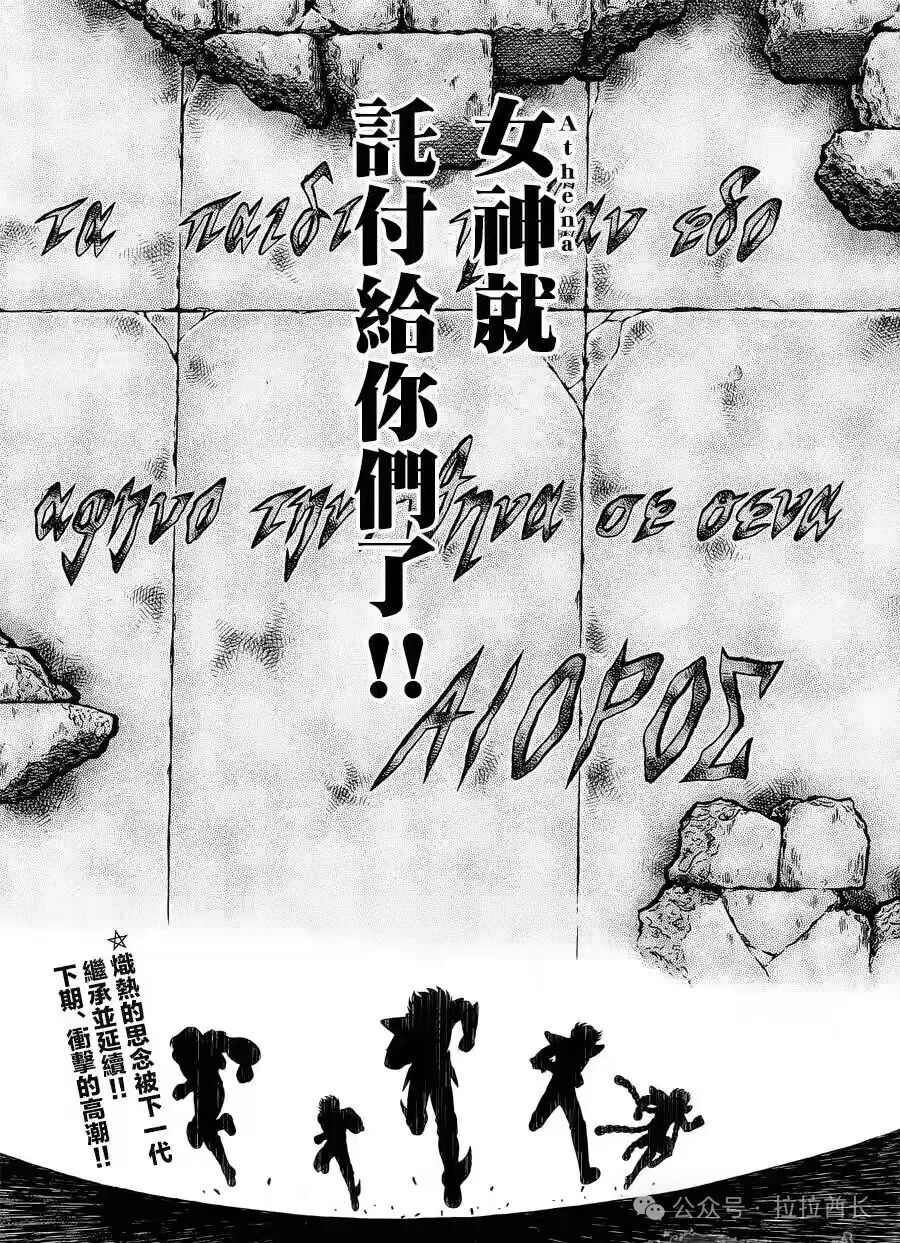 女神就
Athena
託付給你們了!!
τα παιδ αν εδο
αφηνο την θηνα σε σενα
ΑΙΟΡΟΣ
☆熾熱的思念被下一代
繼承並延續!!
下期、衝擊的高潮!!
公众号·拉拉酋长